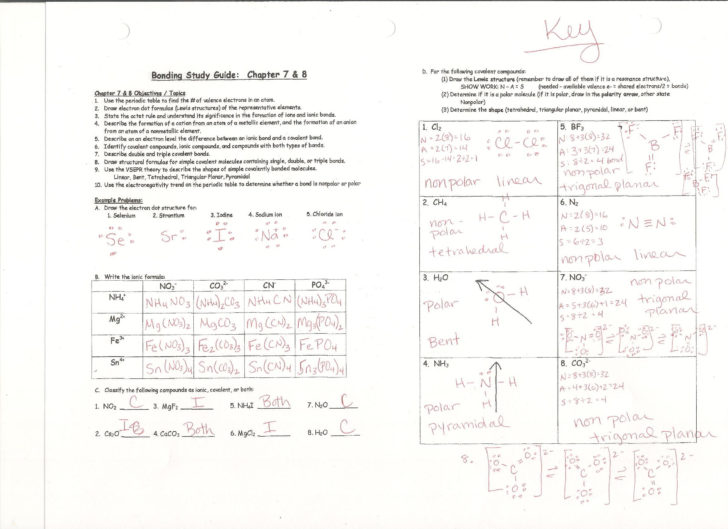 Key
Bonding Study Guide: Chapter 7 & 8
Chapter 7 & 8 Objectives / Topics
1. Use the periodic table to find the # of valence electrons in an atom.
2. Draw electron dot formulas (Lewis structures) of the representative elements.
3. State the octet rule and understand its significance in the formation of ions and ionic bonds.
4. Describe the formation of a cation from an atom of a metallic element, and the formation of an anion
from an atom of a nonmetallic element.
5. Describe on an electron level the difference between an ionic bond and a covalent bond.
6. Identify covalent compounds, ionic compounds, and compounds with both types of bonds.
7. Describe double and triple covalent bonds.
8. Draw structural formulas for simple covalent molecules containing single, double, or triple bonds.
9. Use the VSEPR theory to describe the shapes of simple covalently bonded molecules.
Linear, Bent, Tetrahedral, Triangular Planar, Pyramidal
10. Use the electronegativity trend on the periodic table to determine whether a bond is nonpolar or polar
Example Problems:
A. Draw the electron dot structure for:
1. Selenium 2. Strontium 3. Iodine 4. Sodium ion 5. Chloride ion
Se Sr I Na Cl
B. Write the ionic formula:
NO₃⁻ CO₃²⁻ CN⁻ PO₄³⁻
NH₄⁺ NH₄NO₃ (NH₄)₂CO₃ NH₄CN (NH₄)₃PO₄
Mg²⁺ Mg(NO₃)₂ MgCO₃ Mg(CN)₂ Mg₃(PO₄)₂
Fe³⁺ Fe(NO₃)₃ Fe₂(CO₃)₃ Fe(CN)₃ FePO₄
Sn⁴⁺ Sn(NO₃)₄ Sn(CO₃)₂ Sn(CN)₄ Sn₃(PO₄)₄
C. Classify the following compounds as ionic, covalent, or both:
1. NO₂ C 3. MgF₂ I 5. NH₄I Both 7. N₂O C
4. CaCO₃ Both 6. MgCl₂ I 8. H₂O C
D. For the following covalent compounds:
(1) Draw the Lewis structure (remember to draw all of them if it is a resonance structure),
SHOW WORK: N - A = S (needed - available valence e- = shared electrons/2 = bonds)
(2) Determine if it is a polar molecule (if it is polar, draw in the polarity arrow, other state
Nonpolar)
(3) Determine the shape (tetrahedral, triangular planar, pyramidal, linear, or bent)
1. Cl₂
N = 2(8) = 16
A = 2(7) = 14
S = 16-14=2÷2=1
Cl-Cl
nonpolar linear
5. BF₃
N 8+3(8)=32
A 3+3(7)=24
S 8÷2=4 bond
nonpolar
trigonal planar
2. CH₄
H-C-H
H
non-
polar
tetrahedral
6. N₂
N=2(8)=16
A=2(5)=10
S=6÷2=3
N≡N
nonpolar linear
3. H₂O
O-H
H
Polar
Bent
7. NO₃⁻
N=8+3(8)=32
A=5+3(6)+1=24
S=8÷2=4
non polar
trigonal
planar
4. NH₃
H-N-H
H
polar
pyramidal
8. CO₃²⁻
N=8+3(8)=32
A=4+3(6)+2=24
S=8÷2=4
non polar
trigonal planar
8.